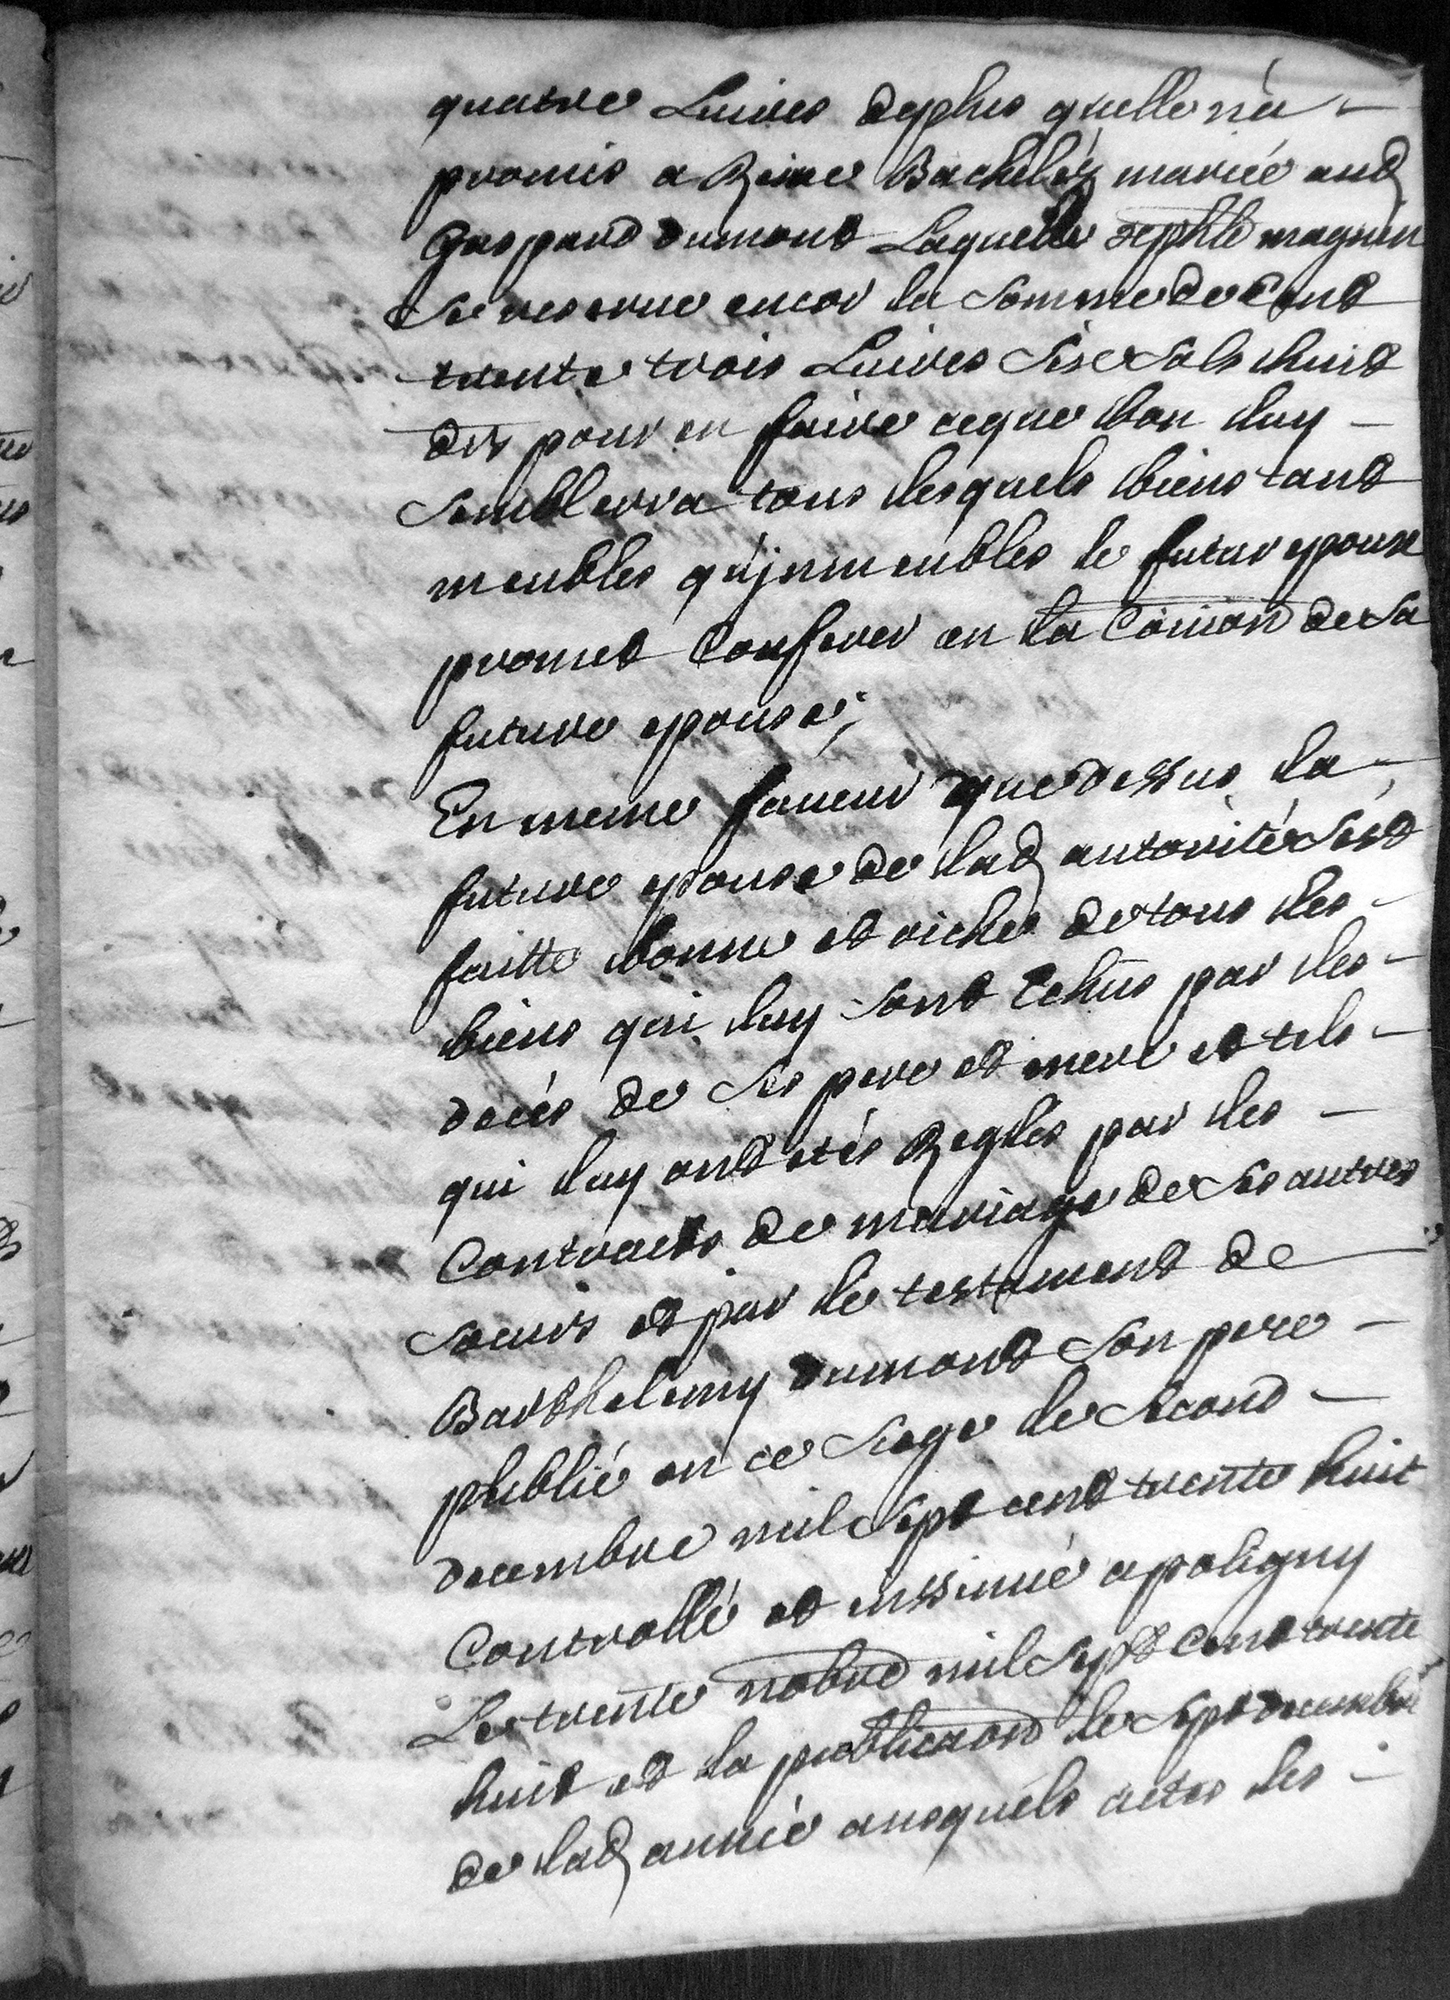 quatre Livres deplus quelle n'a
promis a Reine Bachelez mariée aud
Gaspard dumont Laquelle magnin
Se reserve encor la Somme de Cent
trente trois Livres Sise Sols huit
drs pour en faire ce que bon luy
Semblerra tous lesquels biens tant
meubles qu'jmmeubles le futur epoux
promet Conferer en la Comion de Sa
future epouse;
En meme faveur que dessus la
future epouse de lad autorité S'est
faitte bonne et riche de tous les
biens qui luy sont Echus par les
decés de Ses pere et mere et tels
qui luy ont etés Reglés par les
Contracts de mariage de Ses autres
Soeurs et par le testament de
Barthelemy dumont Son pere
publié en ce Siege le Second
decembre mil Sept cent trente huit
Controllé et inssinué a poligny
Le trente nobre mil Sept Cent trente
huit et la publicaon le Sept decembre
de lad année ausquels actes les